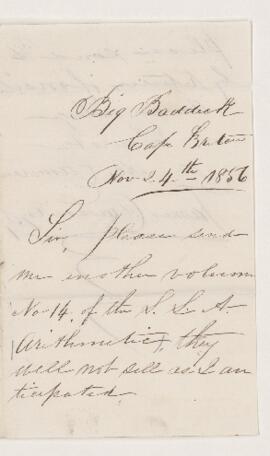 Big Baddeck
Cape Breton
Nov 24th 1856
Sir, please send
me another volume
No 14 of the S. S. A.
Arithmetic, they
will not sell as I an
ticipated.